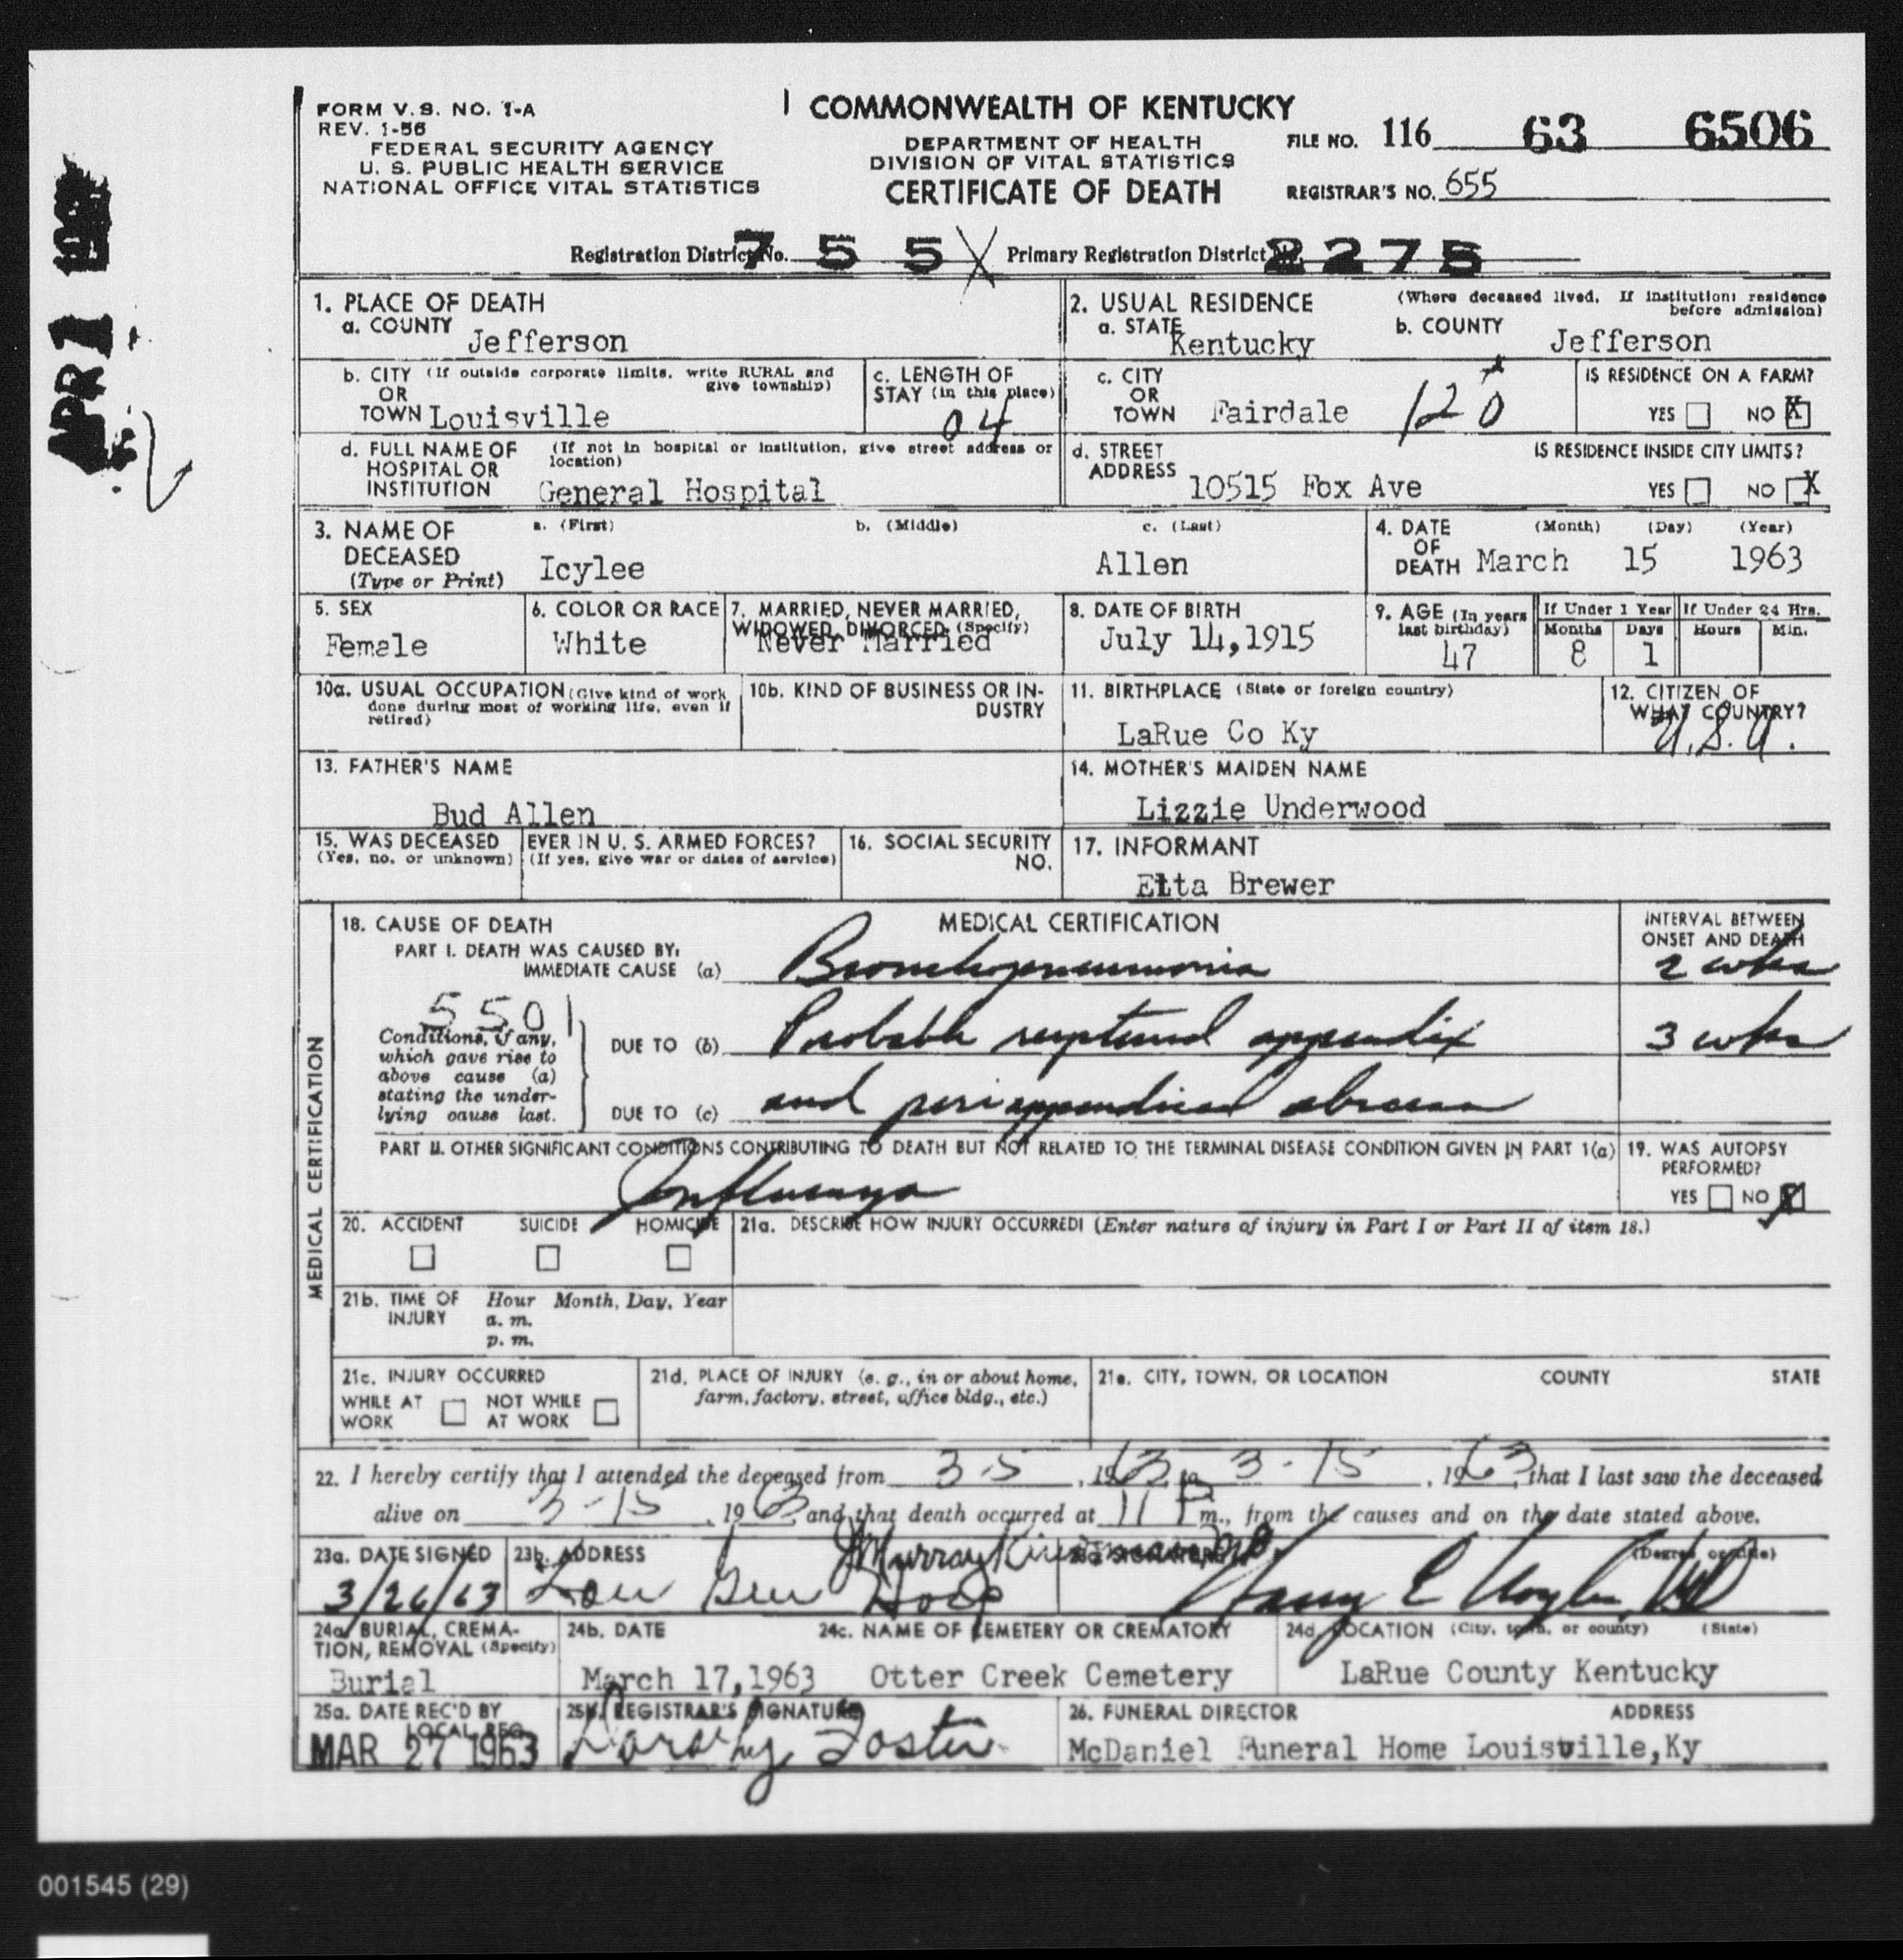 FORM V.S. NO. 1-A
REV. 1-56
FEDERAL SECURITY AGENCY
U. S. PUBLIC HEALTH SERVICE
NATIONAL OFFICE VITAL STATISTICS
COMMONWEALTH OF KENTUCKY
DEPARTMENT OF HEALTH
DIVISION OF VITAL STATISTICS
CERTIFICATE OF DEATH
FILE NO. 116 63 6506
REGISTRAR'S NO. 655
APR 1
Registration District No. 755 X Primary Registration District 2275
1. PLACE OF DEATH
a. COUNTY Jefferson
2. USUAL RESIDENCE (Where deceased lived. If institution: residence before admission)
a. STATE Kentucky b. COUNTY Jefferson
b. CITY (If outside corporate limits, write RURAL and give township)
OR
TOWN Louisville
c. LENGTH OF STAY (in this place) 04
c. CITY
OR
TOWN Fairdale 120
IS RESIDENCE ON A FARM?
YES NO X
d. FULL NAME OF HOSPITAL OR INSTITUTION (If not in hospital or institution, give street address or location)
General Hospital
d. STREET ADDRESS 10515 Fox Ave
IS RESIDENCE INSIDE CITY LIMITS?
YES NO X
3. NAME OF DECEASED (Type or Print)
a. (First) b. (Middle) c. (Last)
Icylee Allen
4. DATE OF DEATH (Month) (Day) (Year)
March 15 1963
5. SEX
Female
6. COLOR OR RACE
White
7. MARRIED, NEVER MARRIED, WIDOWED, DIVORCED (Specify)
Never Married
8. DATE OF BIRTH
July 14,1915
9. AGE (In years last birthday)
47
If Under 1 Year If Under 24 Hrs.
Months Days Hours Min.
8 1
10a. USUAL OCCUPATION (Give kind of work done during most of working life, even if retired)
10b. KIND OF BUSINESS OR INDUSTRY
11. BIRTHPLACE (State or foreign country)
LaRue Co Ky
12. CITIZEN OF WHAT COUNTRY?
U.S.A.
13. FATHER'S NAME
Bud Allen
14. MOTHER'S MAIDEN NAME
Lizzie Underwood
15. WAS DECEASED EVER IN U. S. ARMED FORCES?
(Yes, no, or unknown) (If yes, give war or dates of service)
16. SOCIAL SECURITY NO.
17. INFORMANT
Etta Brewer
MEDICAL CERTIFICATION
18. CAUSE OF DEATH MEDICAL CERTIFICATION
INTERVAL BETWEEN ONSET AND DEATH
PART I. DEATH WAS CAUSED BY:
IMMEDIATE CAUSE (a) Bronchopneumonia 2 wks
5501
Conditions, if any, which gave rise to above cause (a) stating the underlying cause last.
DUE TO (b) Probable ruptured appendix 3 wks
DUE TO (c) and periappendical abscess
PART II. OTHER SIGNIFICANT CONDITIONS CONTRIBUTING TO DEATH BUT NOT RELATED TO THE TERMINAL DISEASE CONDITION GIVEN IN PART 1(a)
Influenza
19. WAS AUTOPSY PERFORMED?
YES NO X
20. ACCIDENT SUICIDE HOMICIDE
21a. DESCRIBE HOW INJURY OCCURRED: (Enter nature of injury in Part I or Part II of item 18.)
21b. TIME OF INJURY Hour Month, Day, Year
a. m.
p. m.
21c. INJURY OCCURRED
WHILE AT WORK NOT WHILE AT WORK
21d. PLACE OF INJURY (e. g., in or about home, farm, factory, street, office bldg., etc.)
21e. CITY, TOWN, OR LOCATION COUNTY STATE
22. I hereby certify that I attended the deceased from 3-5, 1963, to 3-15, 1963, that I last saw the deceased
alive on 3-15, 1963, and that death occurred at 11 P m., from the causes and on the date stated above.
23a. DATE SIGNED
3/26/63
23b. ADDRESS
Lou Gen Hosp
J Murray MD
(Degree or title)
Harry E MD
24a. BURIAL, CREMATION, REMOVAL (Specify)
Burial
24b. DATE
March 17,1963
24c. NAME OF CEMETERY OR CREMATORY
Otter Creek Cemetery
24d. LOCATION (City, town, or county) (State)
LaRue County Kentucky
25a. DATE REC'D BY LOCAL REG.
MAR 27 1963
25b. REGISTRAR'S SIGNATURE
Dorothy Foster
26. FUNERAL DIRECTOR ADDRESS
McDaniel Funeral Home Louisville,Ky
001545 (29)